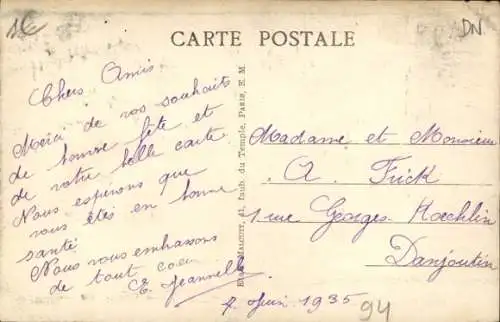 1€
CARTE POSTALE
DN
Chers Amis
Merci de vos souhaits
de bonne fête et
de votre belle carte
Nous esperons que
vous êtes en bonne
santé
Nous vous embrassons
de tout coeur
E. Jeannette
41, Faub. du Temple, Paris, E. M.
Madame et Monsieur
A. Frick
1 rue Georges Kœchlin
Danjoutin
7 Juin 1935
94